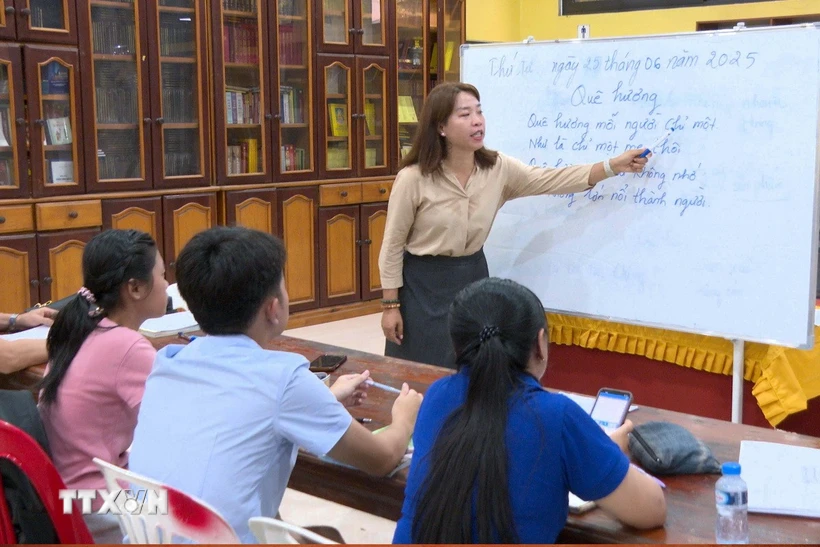 Thứ ngày 25 tháng 06 năm 2025
Quê hương
Quê hương mỗi người chỉ một
Như là chỉ một mẹ thôi
Quê không nhớ
không lớn nổi thành người.
TTXVN